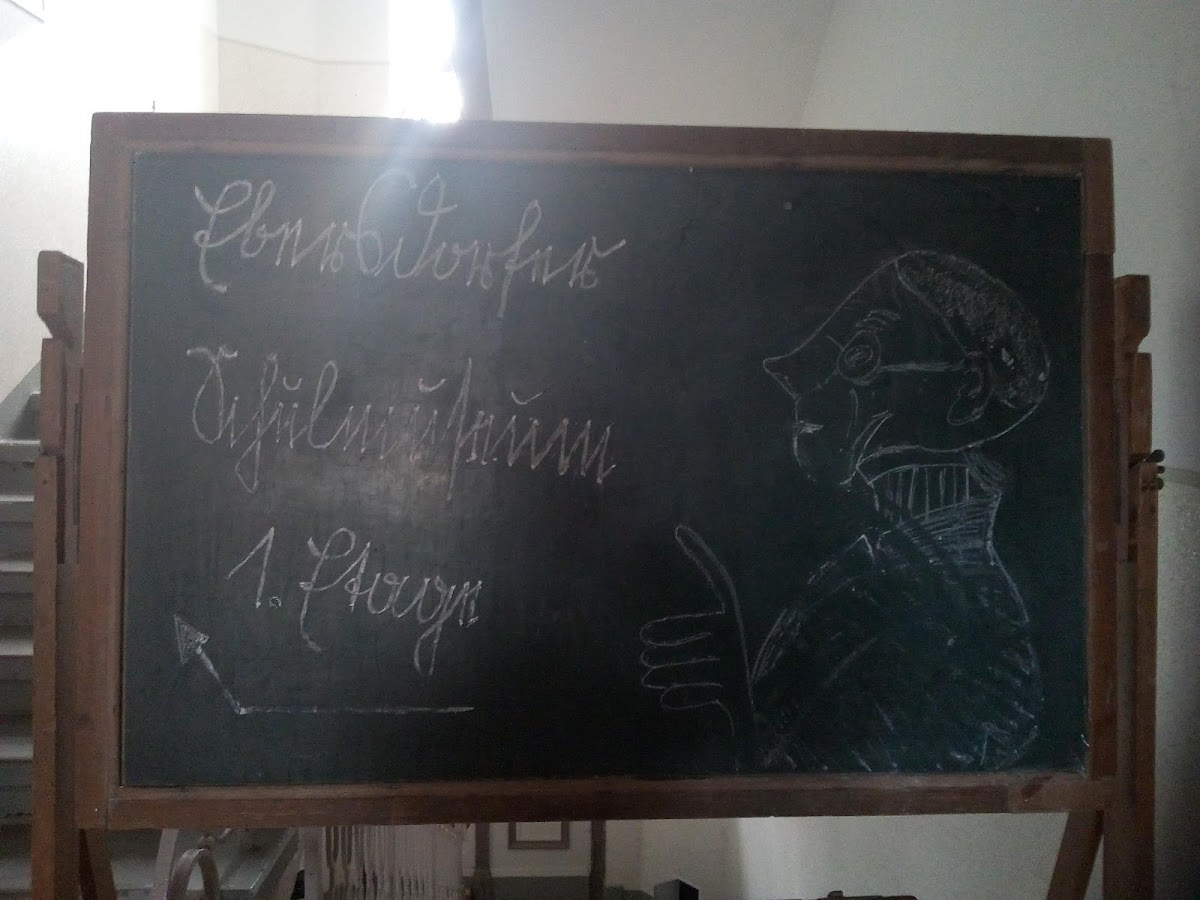 Ebersdorfer
Schulmuseum
1. Etage